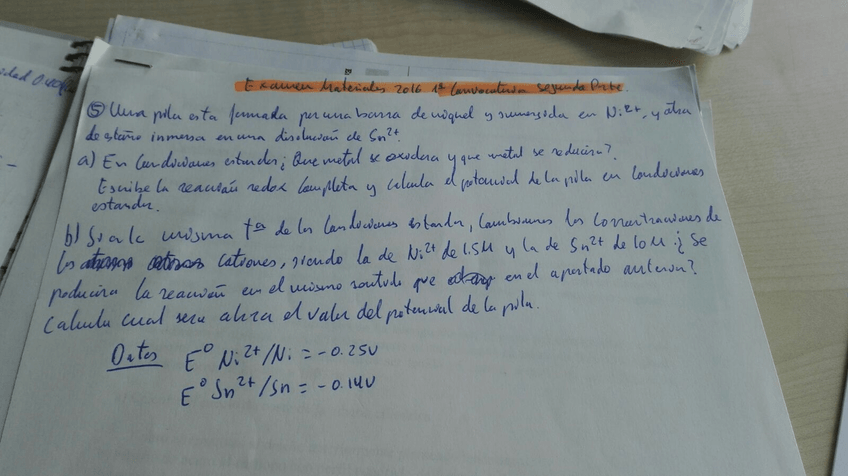 idad 0.40
Examen Materiales 2016 1ª Convocatoria Segunda Parte.
⑤ Una pila esta formada por una barra de niquel y sumergida en Ni2+, y otra
de estaño inmersa en una disolución de Sn2+.
a) En Condiciones estandar ¿Que metal se oxidara y que metal se reducira?.
Escribe la reacción redox Completa y calcula el potencial de la pila en Condiciones
estandar.
b) Si a la misma tª de las Condiciones estandar, Cambiamos las Concentraciones de
los cationes, siendo la de Ni2+ de 1.5M y la de Sn2+ de M ¿Se
producira la reacción en el mismo sentido que en el apartado anterior?
Calcula cual sera ahora el valor del potencial de la pila.
Datos E⁰ Ni2+/Ni = -0.25V
E⁰ Sn2+/Sn = -0.14V